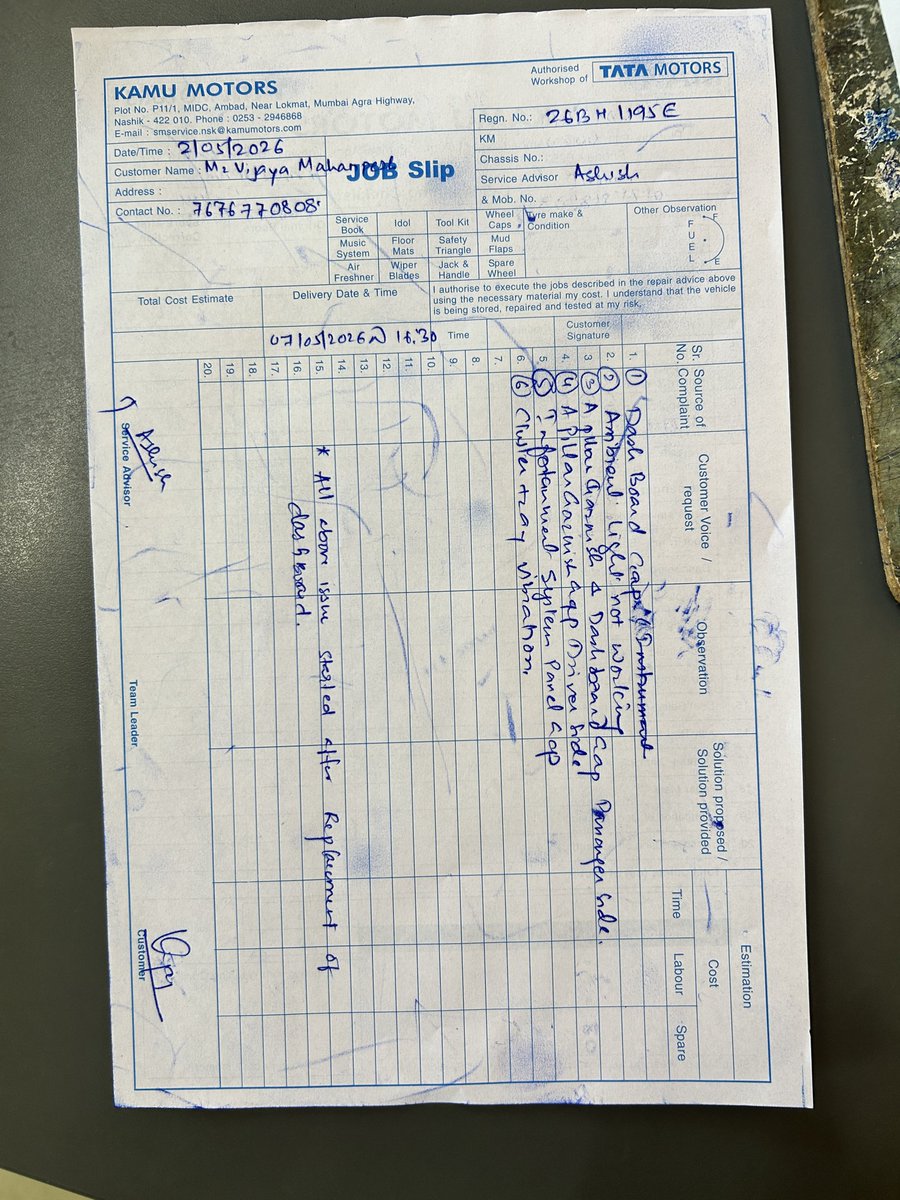 KAMU MOTORS
Plot No. P11/1, MIDC, Ambad, Near Lokmat, Mumbai Agra Highway,
Nashik - 422 010. Phone : 0253 - 2946868
E-mail : smservice.nsk@kamumotors.com
Authorised Workshop of TATA MOTORS
Date/Time : 2/05/2026
Customer Name : Mr Vijaya
Address :
Contact No. : 7676770808
JOB Slip
Regn. No.: 26BH1195E
KM
Chassis No.:
Service Advisor Ashish
& Mob. No.
Service Book Idol Tool Kit Wheel Caps
Music System Floor Mats Safety Triangle Mud Flaps
Air Freshner Wiper Blades Jack & Handle Spare Wheel
Tyre make & Condition
Other Observation
FUEL
F
E
Total Cost Estimate
Delivery Date & Time
I authorise to execute the jobs described in the repair advice above
using the necessary material my cost. I understand that the vehicle
is being stored, repaired and tested at my risk.
07/05/2026 Time
Customer Signature
Sr. No. Source of Complaint Customer Voice / request Observation Solution proposed / Solution provided Estimation
Time Cost
Labour Spare
1. ① Dash Board Gap
2. ② Ambient Light not working
3 ③ A pillar Garnish & Dashboard Gap Passanger side.
4. ④ A Pillar Garnish Gap Driver side
5. ⑤ Infotainment System Panel Gap
6. ⑥ Cluster tray vibration.
7.
8.
9.
10.
11.
12.
13.
14.
15. * All above issue started after Replacement of
16. dash Board.
17.
18.
19.
20.
Ashish
Service Advisor
Team Leader
Customer